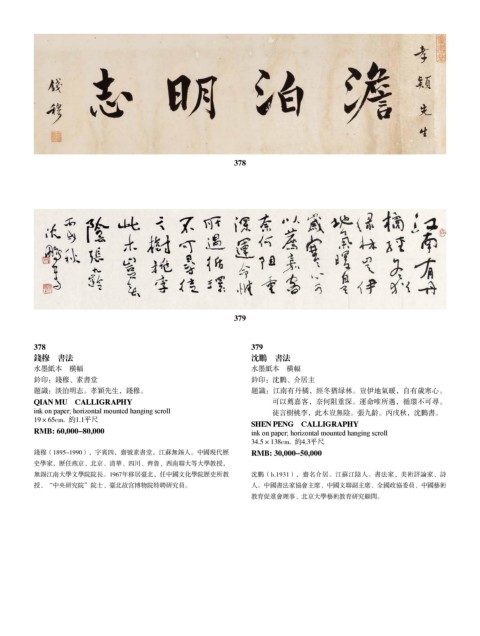 孝穎先生
澹泊明志
錢穆
378
江南有丹
橘經冬猶
綠林豈伊
地氣暖自有
歲寒心可
以薦嘉客
奈何阻重
深運命惟
所遇循環
不可尋徒
言樹桃李
此木豈無
陰張九齡
丙戌秋
沈鵬書
379
378
錢穆 書法
水墨紙本 橫幅
鈐印：錢穆、素書堂
題識：淡泊明志。孝穎先生，錢穆。
QIAN MU CALLIGRAPHY
ink on paper; horizontal mounted hanging scroll
19×65cm. 約1.1平尺
RMB: 60,000–80,000
錢穆（1895–1990），字賓四，齋號素書堂，江蘇無錫人。中國現代歷
史學家，歷任燕京、北京、清華、四川、齊魯、西南聯大等大學教授，
無錫江南大學文學院院長。1967年移居臺北。任中國文化學院歷史所教
授、“中央研究院”院士、臺北故宮博物院特聘研究員。
379
沈鵬 書法
水墨紙本 橫幅
鈐印：沈鵬、介居主
題識：江南有丹橘，經冬猶綠林。豈伊地氣暖，自有歲寒心。
可以薦嘉客，奈何阻重深。運命唯所遇，循環不可尋。
徒言樹桃李，此木豈無陰。張九齡。丙戌秋，沈鵬書。
SHEN PENG CALLIGRAPHY
ink on paper; horizontal mounted hanging scroll
34.5×138cm. 約4.3平尺
RMB: 30,000–50,000
沈鵬（b.1931），齋名介居。江蘇江陰人。書法家、美術評論家、詩
人。中國書法家協會主席、中國文聯副主席、全國政協委員、中國藝術
教育促進會理事、北京大學藝術教育研究顧問。